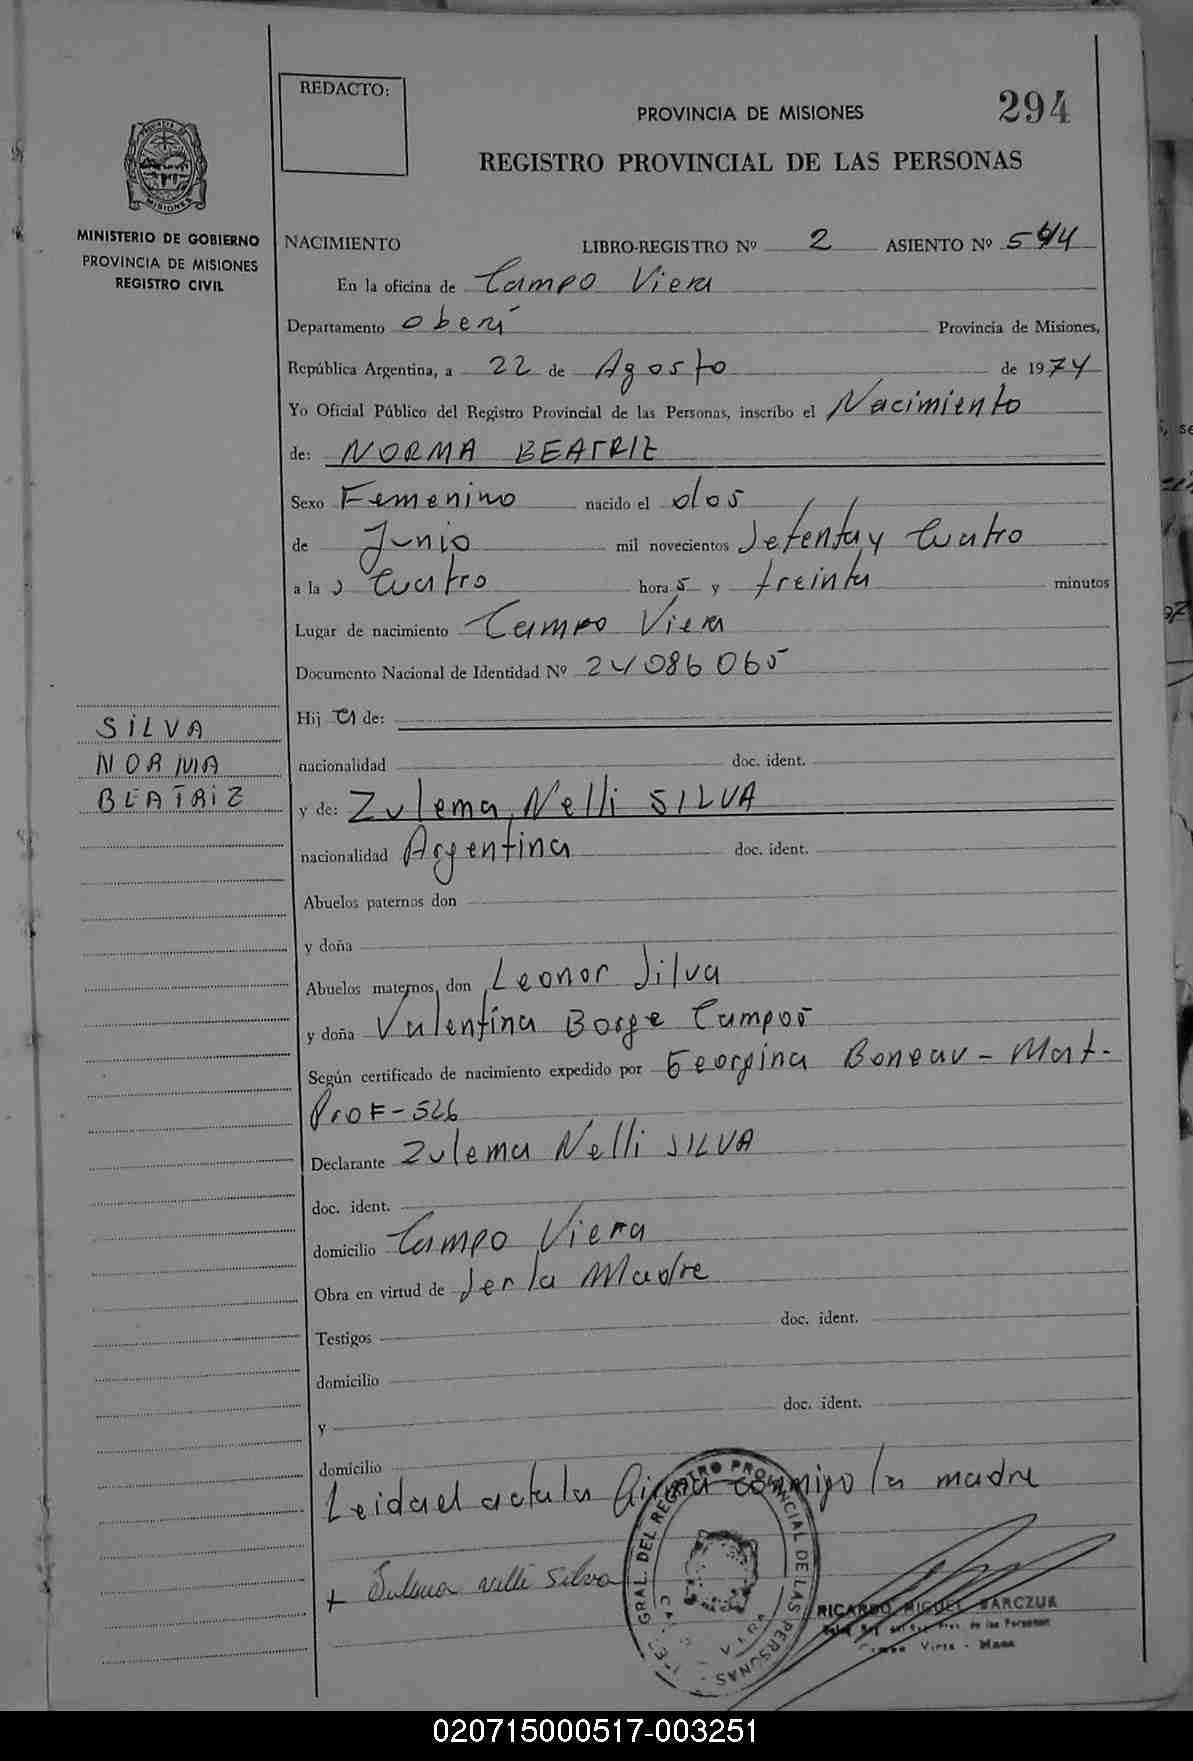 REDACTO:
PROVINCIA DE MISIONES
294
REGISTRO PROVINCIAL DE LAS PERSONAS
MISIONES
MINISTERIO DE GOBIERNO
PROVINCIA DE MISIONES
REGISTRO CIVIL
NACIMIENTO LIBRO-REGISTRO Nº 2 ASIENTO Nº 544
En la oficina de Campo Viera
Departamento Oberá Provincia de Misiones,
República Argentina, a 22 de Agosto de 1974
Yo Oficial Público del Registro Provincial de las Personas, inscribo el Nacimiento
de: NORMA BEATRIZ
Sexo Femenino nacido el dos
de Junio mil novecientos Setenta y Cuatro
a la s Cuatro hora s y treinta minutos
Lugar de nacimiento Campo Viera
Documento Nacional de Identidad Nº 24086065
Hij a de:
nacionalidad doc. ident.
SILVA
NORMA
BEATRIZ
y de: Zulema Nelli SILVA
nacionalidad Argentina doc. ident.
Abuelos paternos don
y doña
Abuelos maternos, don Leonor Silva
y doña Valentina Borge Campos
Según certificado de nacimiento expedido por Georgina Boneau - Mat.
Prof - 526
Declarante Zulema Nelli SILVA
doc. ident.
domicilio Campo Viera
Obra en virtud de Ser la Madre
Testigos doc. ident.
domicilio
y doc. ident.
domicilio
Leida el acta la firma conmigo la madre
+ Sulema Nelli Silva
GRAL. DEL REGISTRO PROVINCIAL DE LAS PERSONAS
RICARDO MIGUEL BARCZUK
de las Personas
Campo Viera -
020715000517-003251